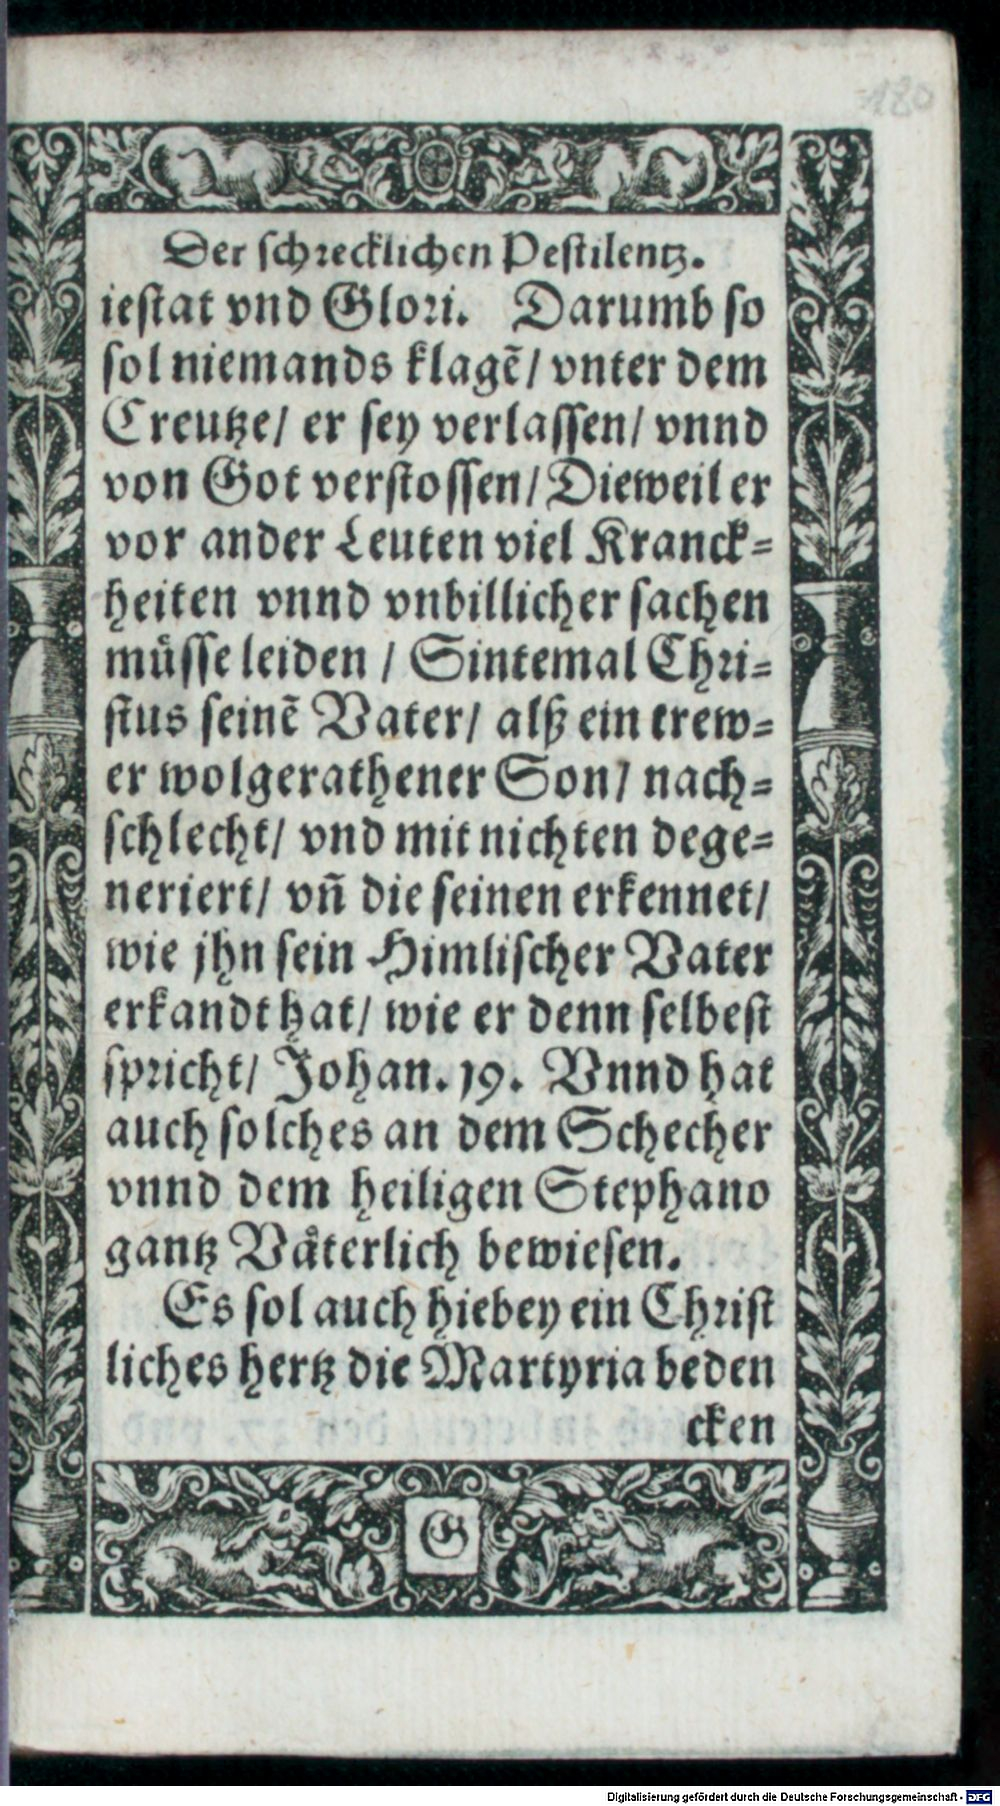 180
Der schrecklichen Pestilentz.
iestat vnd Glori. Darumb so
sol niemands klagẽ/ vnter dem
Creutze/ er sey verlassen/ vnnd
von Got verstossen/ Dieweil er
vor ander Leuten viel Kranck-
heiten vnnd vnbillicher sachen
muͤsse leiden / Sintemal Chri-
stus seinẽ Vater/ alß ein trew-
er wolgerathener Son/ nach-
schlecht/ vnd mit nichten dege-
neriert/ vñ die seinen erkennet/
wie jhn sein Himlischer Vater
erkandt hat/ wie er denn selbest
spricht/ Johan. 19. Vnnd hat
auch solches an dem Schecher
vnnd dem heiligen Stephano
gantz Vaͤterlich bewiesen.
Es sol auch hiebey ein Christ
liches hertz die Martyria beden
cken
G
Digitalisierung gefördert durch die Deutsche Forschungsgemeinschaft - DFG